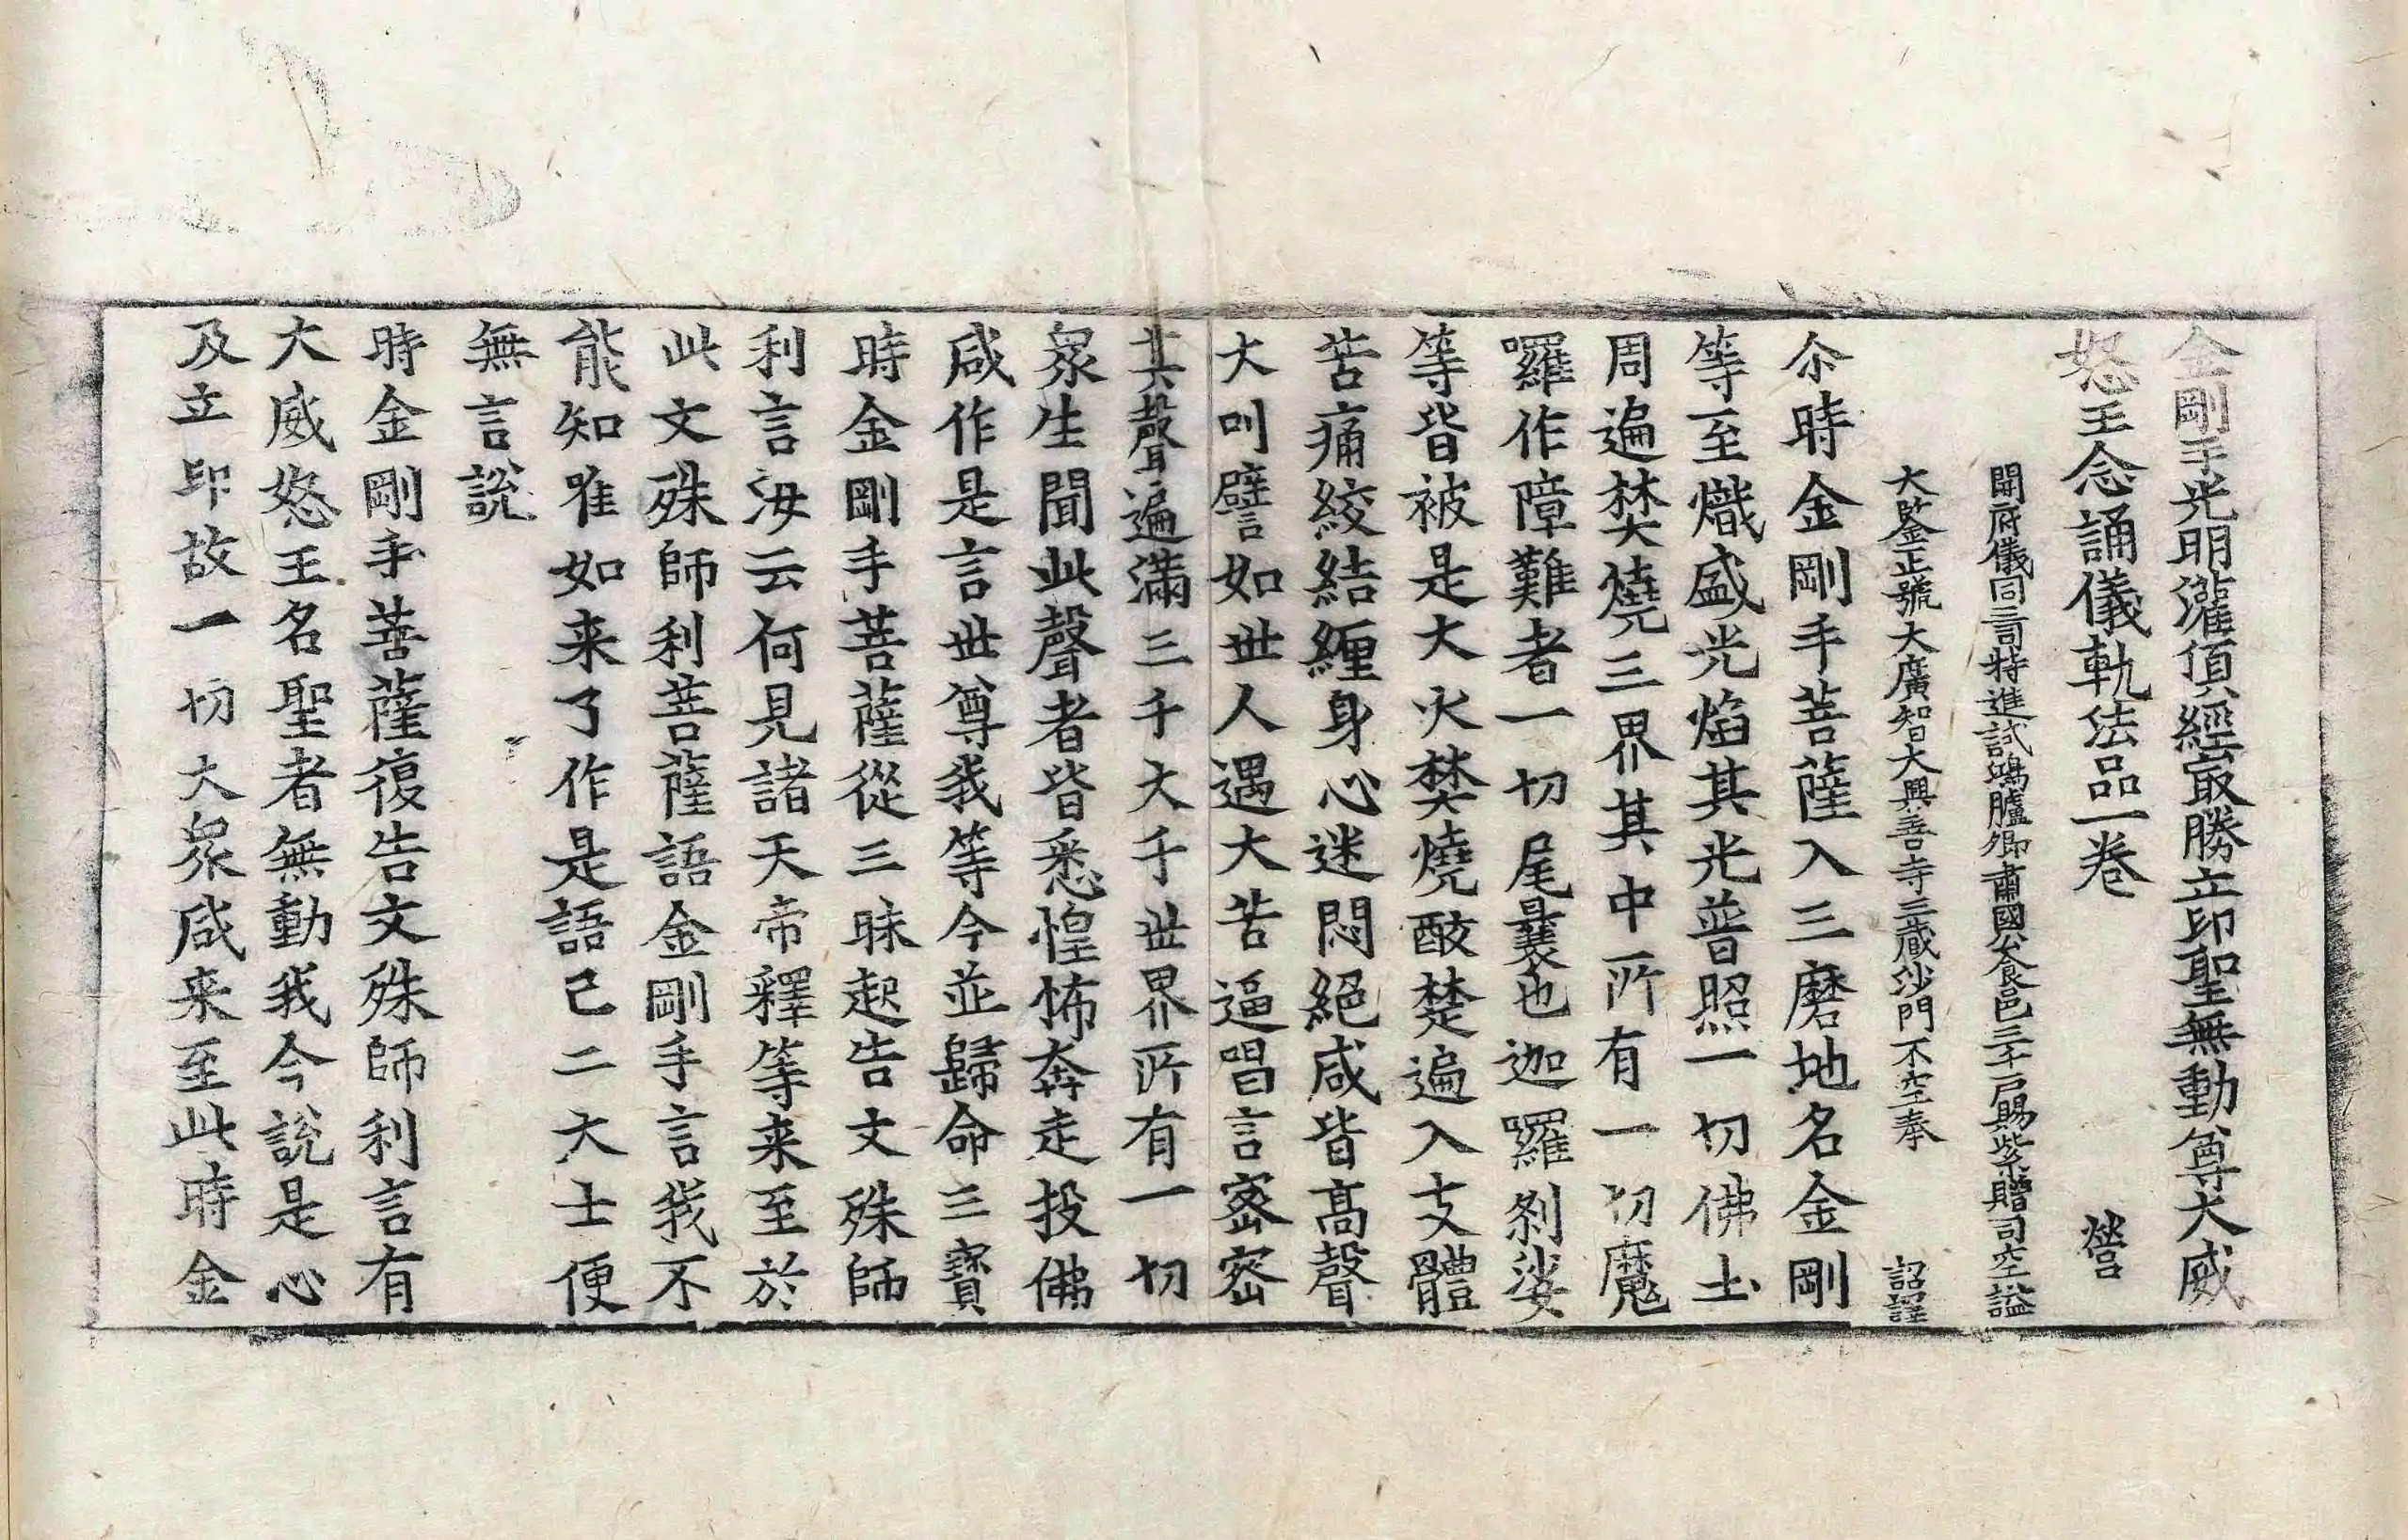 金剛手光明灌頂經㝡勝立印聖無動尊大威
怒王念誦儀軌法品一卷 營
開府儀同三司特進試鴻臚卿肅國公食邑三千戶賜紫贈司空謚
大鑒正號大廣智大興善寺三藏沙門不空奉 詔譯
尒時金剛手菩薩入三磨地名金剛
等至熾盛光焰其光普照一切佛土
周遍焚燒三界其中所有一切魔
囉作障難者一切尾曩也迦囉剎娑
等皆被是大火焚燒酸楚遍入支體
苦痛絞結纏身心迷悶絕咸皆高聲
大叫譬如世人遇大苦逼唱言密密
其聲遍滿三千大千世界所有一切
衆生聞此聲者皆悉惶怖奔走投佛
咸作是言世尊我等今並歸命三寶
時金剛手菩薩從三昧起告文殊師
利言汝云何見諸天帝釋等来至於
此文殊師利菩薩語金剛手言我不
能知唯如来了作是語已二大士便
無言說
時金剛手菩薩復告文殊師利言有
大威怒王名聖者無動我今說是心
及立印故一切大衆咸来至此時金